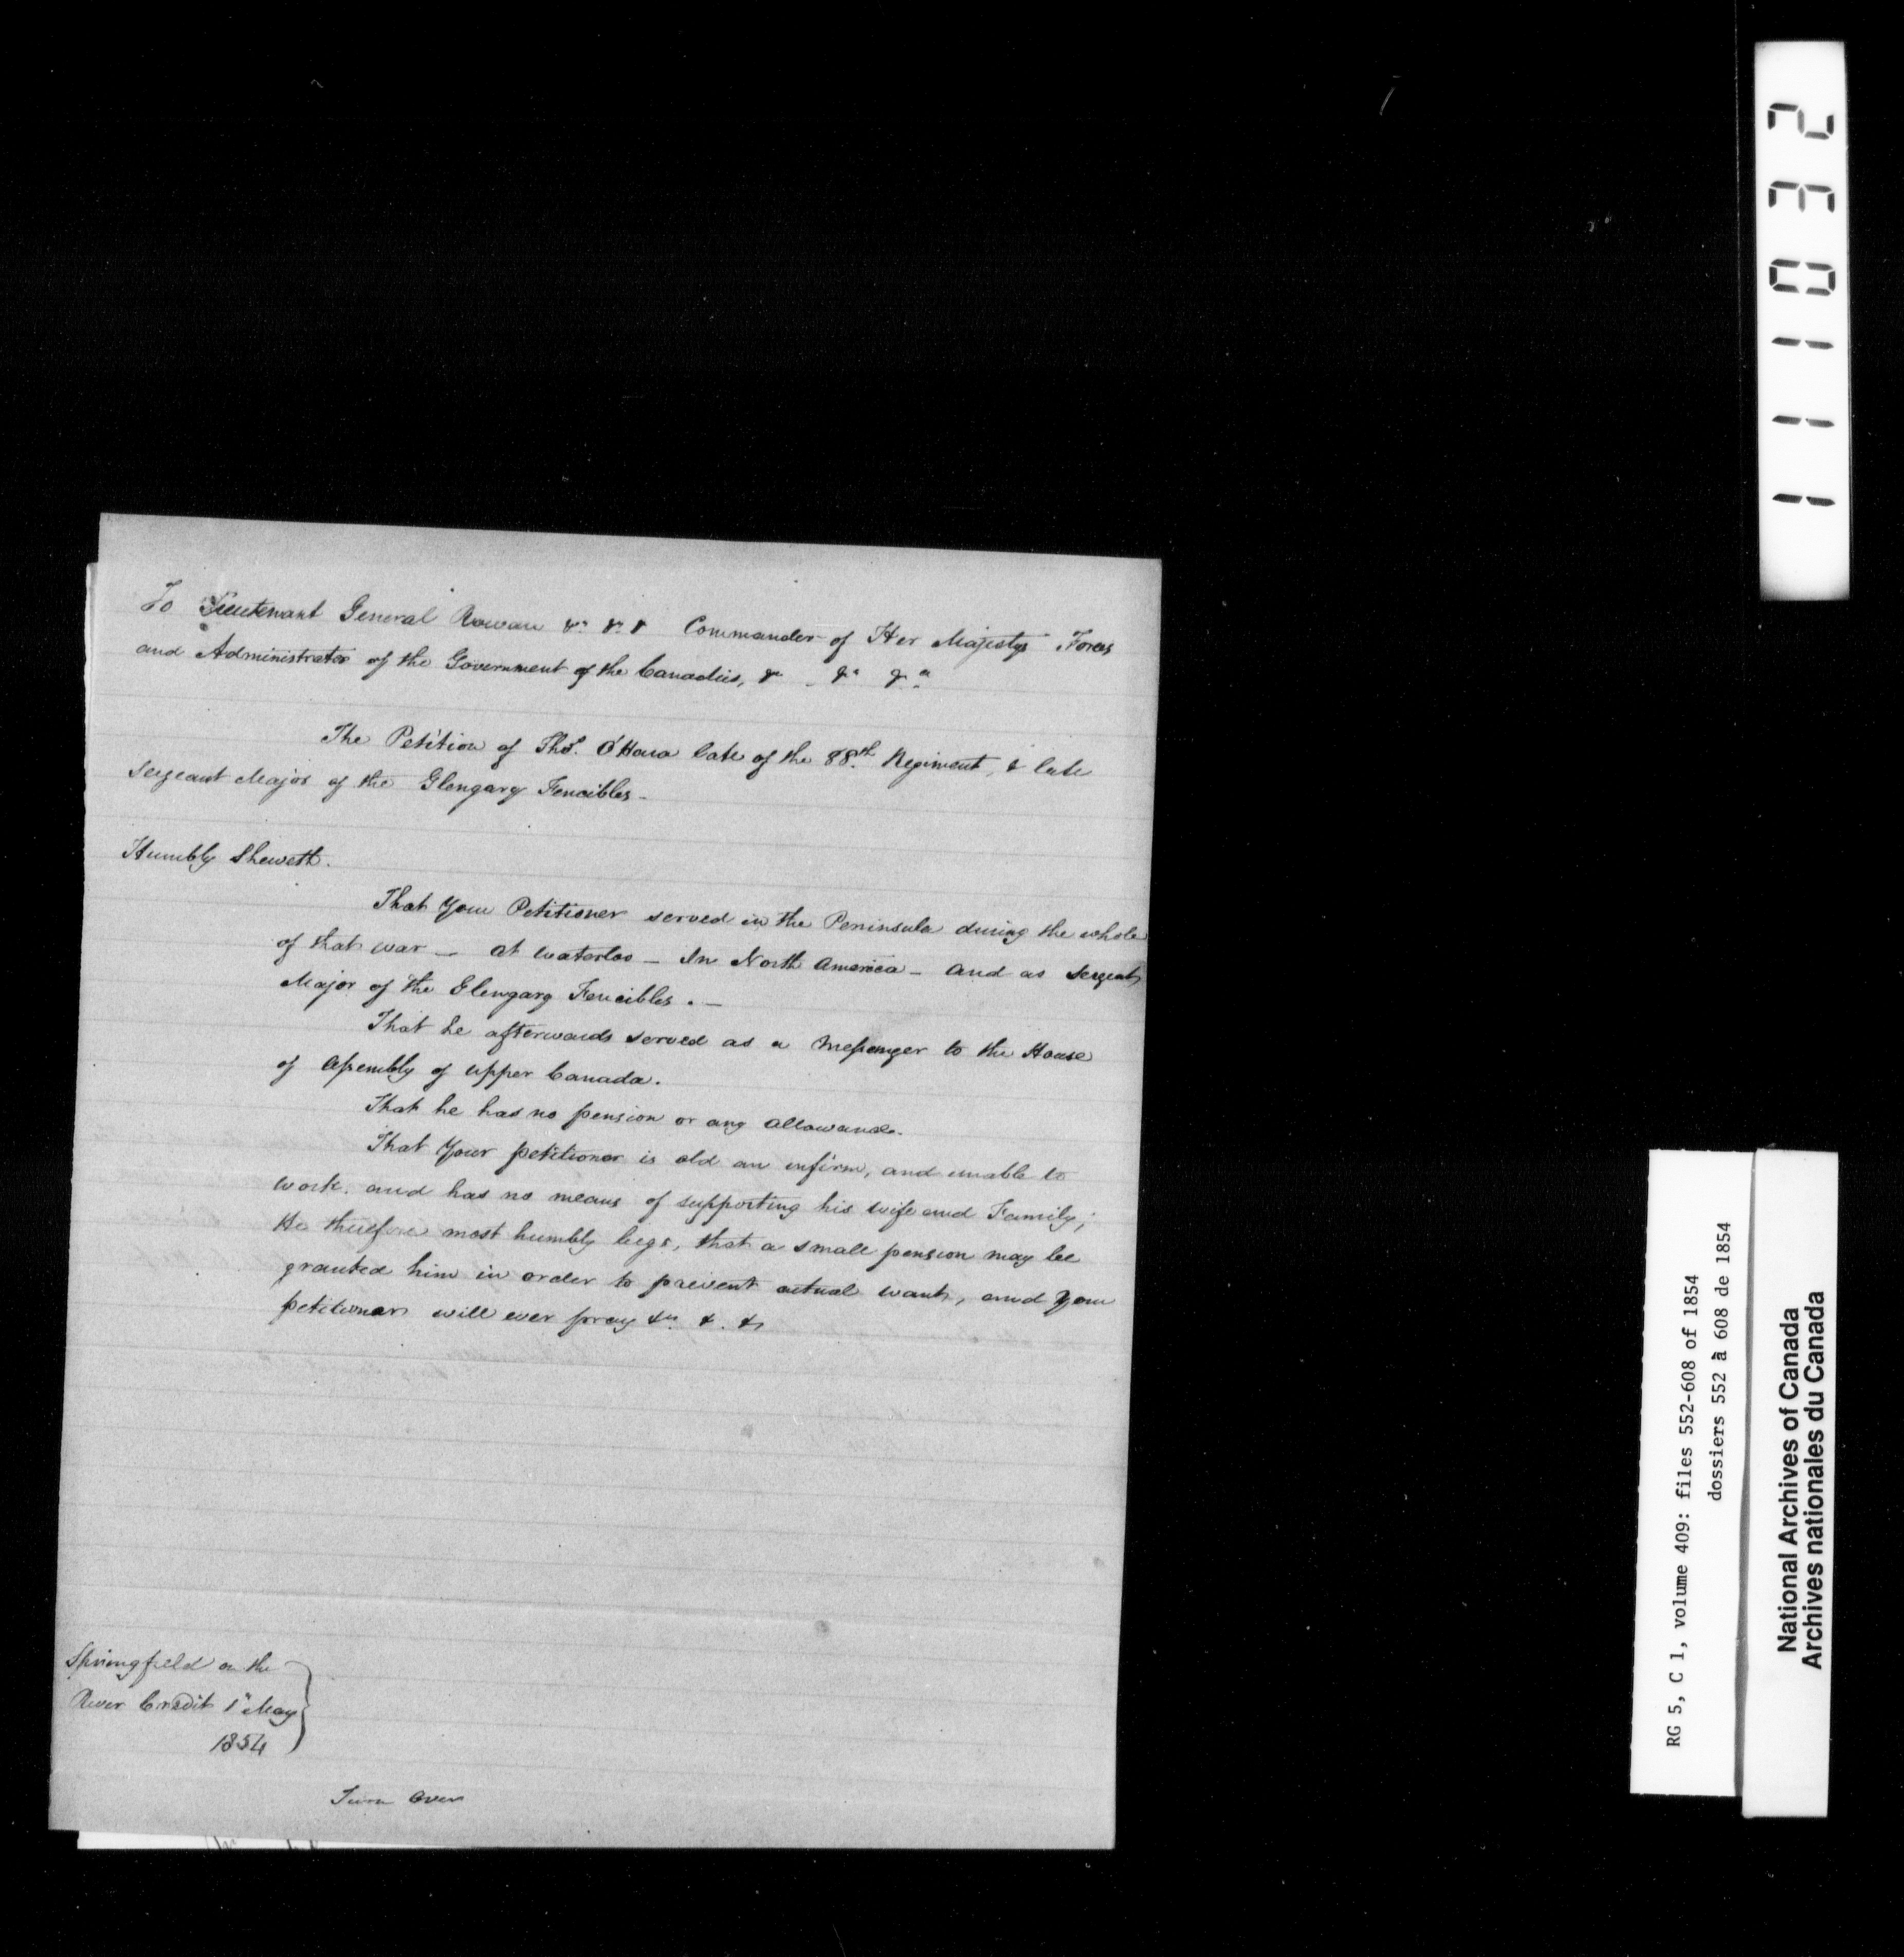 To Lieutenant General Rowan &c &c & Commander of Her Majestys Forces
and Administrator of the Government of the Canadies, &c - &c &c
The Petition of Thos. O'Hara late of the 88th Regiment, & late
Sergeant Major of the Glengary Fencibles -
Humbly Sheweth.
That Your Petitioner served in the Peninsula during the whole
of that war - at Waterloo - In North America - and as Sergeant
Major of the Glengary Fencibles. -
That he afterwards served as a Messenger to the House
of Assembly of Upper Canada.
That he has no pension or any allowance.
That Your petitioner is old an infirm, and unable to
work. and has no means of supporting his wife and Family;
He therefore most humbly begs, that a small pension may be
granted him in order to prevent actual want, and Your
petitioner will ever pray &c & &
Springfield on the
River Credit 1st May
1854
Turn Over
111032
RG 5, C 1, volume 409: files 552-608 of 1854
dossiers 552 à 608 de 1854
National Archives of Canada
Archives nationales du Canada